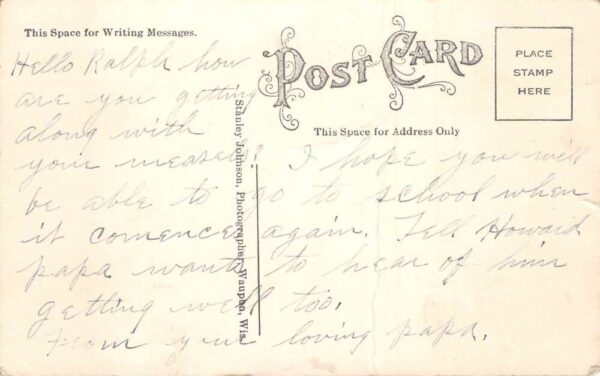 This Space for Writing Messages.
POST CARD
PLACE
STAMP
HERE
This Space for Address Only
Stanley Johnson, Photographer, Waupun, Wis.
Hello Ralph how
are you getting
along with
your measels? I hope you will
be able to go to school when
it comence again. Tell Howard
papa wants to hear of him
getting well too.
From your loving papa.